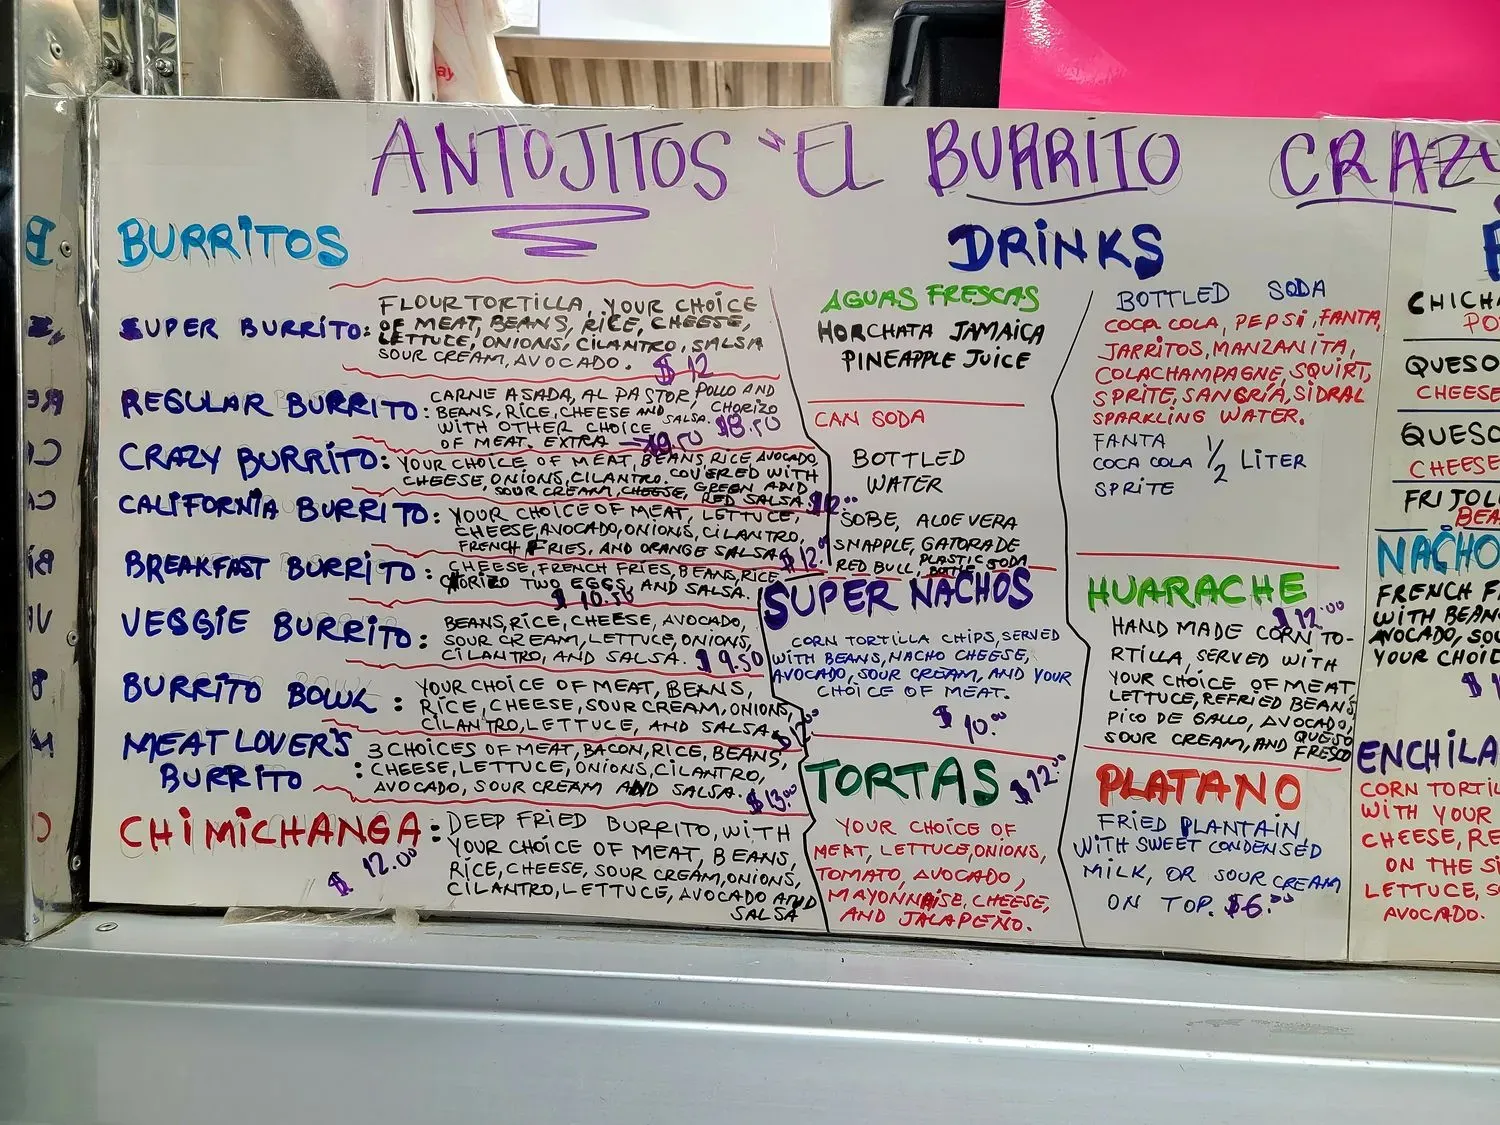 ANTOJITOS "EL BURRITO CRAZY
BURRITOS
SUPER BURRITO:
FLOUR TORTILLA, YOUR CHOICE
OF MEAT, BEANS, RICE, CHEESE,
LETTUCE, ONIONS, CILANTRO, SALSA
SOUR CREAM, AVOCADO. $12
REGULAR BURRITO:
CARNE ASADA, AL PASTOR, POLLO AND
BEANS, RICE, CHEESE AND SALSA. CHORIZO
WITH OTHER CHOICE $8.50
OF MEAT. EXTRA → $9.50
CRAZY BURRITO:
YOUR CHOICE OF MEAT, BEANS RICE AVOCADO,
CHEESE, ONIONS, CILANTRO. COVERED WITH
SOUR CREAM, CHEESE, GREEN AND
RED SALSA. $12.00
CALIFORNIA BURRITO:
YOUR CHOICE OF MEAT, LETTUCE,
CHEESE, AVOCADO, ONIONS, CILANTRO,
FRENCH FRIES, AND ORANGE SALSA $12.00
BREAKFAST BURRITO:
CHEESE, FRENCH FRIES, BEANS, RICE
CHORIZO TWO EGGS, AND SALSA.
$10.50
VEGGIE BURRITO:
BEANS, RICE, CHEESE, AVOCADO,
SOUR CREAM, LETTUCE, ONIONS,
CILANTRO, AND SALSA. $9.50
BURRITO BOWL:
YOUR CHOICE OF MEAT, BEANS,
RICE, CHEESE, SOUR CREAM, ONIONS,
CILANTRO, LETTUCE, AND SALSA. $12.00
MEAT LOVER'S
BURRITO :
3 CHOICES OF MEAT, BACON, RICE, BEANS,
CHEESE, LETTUCE, ONIONS, CILANTRO,
AVOCADO, SOUR CREAM AND SALSA. $13.00
CHIMICHANGA:
$12.00
DEEP FRIED BURRITO, WITH
YOUR CHOICE OF MEAT, BEANS,
RICE, CHEESE, SOUR CREAM, ONIONS,
CILANTRO, LETTUCE, AVOCADO AND
SALSA
DRINKS
AGUAS FRESCAS
HORCHATA JAMAICA
PINEAPPLE JUICE
CAN SODA
BOTTLED
WATER
SOBE, ALOE VERA
SNAPPLE, GATORADE
RED BULL, PLASTIC
BOTTLE SODA
BOTTLED SODA
COCA COLA, PEPSI, FANTA,
JARRITOS, MANZANITA,
COLACHAMPAGNE, SQUIRT,
SPRITE, SANGRÍA, SIDRAL
SPARKLING WATER.
FANTA
COCA COLA 1/2 LITER
SPRITE
SUPER NACHOS
CORN TORTILLA CHIPS, SERVED
WITH BEANS, NACHO CHEESE,
AVOCADO, SOUR CREAM, AND YOUR
CHOICE OF MEAT.
$10.00
TORTAS $12.00
YOUR CHOICE OF
MEAT, LETTUCE, ONIONS,
TOMATO, AVOCADO,
MAYONNAISE, CHEESE,
AND JALAPEÑO.
HUARACHE
$12.00
HAND MADE CORN TO-
RTILLA, SERVED WITH
YOUR CHOICE OF MEAT
LETTUCE, REFRIED BEANS,
PICO DE GALLO, AVOCADO,
SOUR CREAM, AND QUESO
FRESCO
PLATANO
FRIED PLANTAIN
WITH SWEET CONDENSED
MILK, OR SOUR CREAM
ON TOP. $6.00
CHICHA
PO
QUESO
CHEESE
QUESO
CHEESE
FRIJOL
BEA
NACHO
FRENCH F
WITH BEAN
AVOCADO, SOU
YOUR CHOI
$1
ENCHILA
CORN TORTIL
WITH YOUR
CHEESE, RE
ON THE SI
LETTUCE, S
AVOCADO.